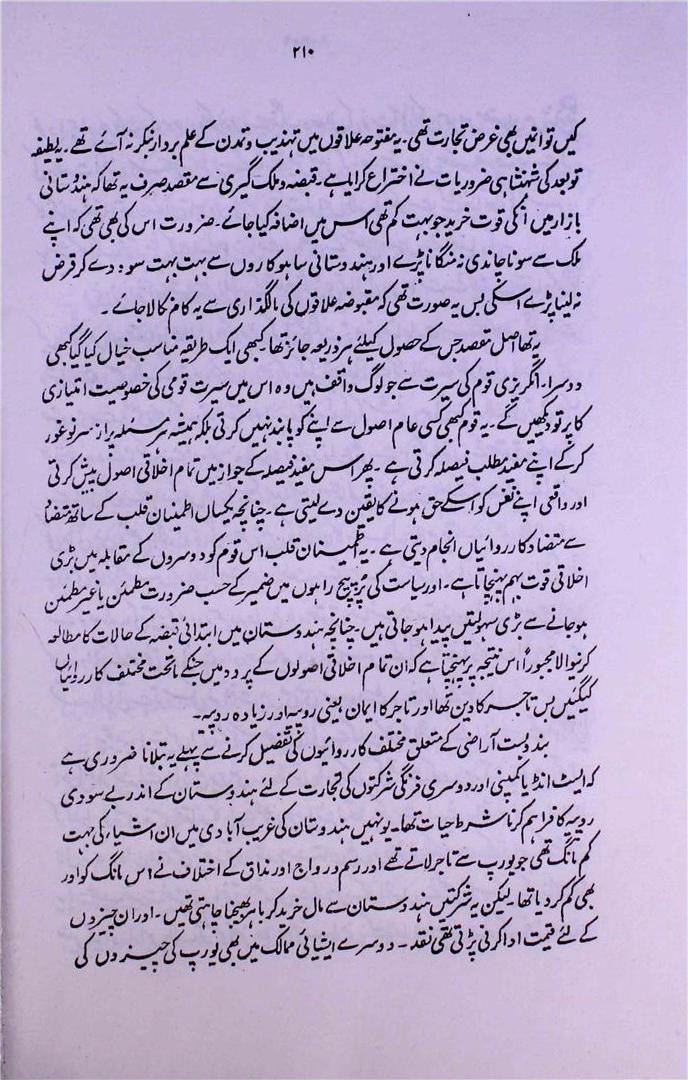 ۲۱۰
کیں تو انیں بھی غرض تجارت تھی۔ یہ مفتوحہ علاقوں میں تہذیب و تمدن کے علم بردار بنکر نہ آئے تھے۔ یہ لطیفہ
تو بعد کی شہنشاہی ضروریات نے اختراع کرایا ہے۔ قبضہ و ملک گیری سے مقصد صرف یہ تھا کہ ہندوستانی
بازار میں انکی قوت خرید جو بہت کم تھی اس میں اضافہ کیا جائے۔ ضرورت اس کی بھی تھی کہ اپنے
ملک سے سونا چاندی نہ منگانا پڑے اور ہندوستانی ساہوکاروں سے بہت بہت سود دے کر قرض
نہ لینا پڑے اسکی بس یہ صورت تھی کہ مقبوضہ علاقوں کی مالگذاری سے یہ کام نکالا جائے۔
یہ تھا اصل مقصد جس کے حصول کیلئے ہر ذریعہ جائز تھا۔ کبھی ایک طریقہ مناسب خیال کیا گیا کبھی
دوسرا۔ انگریزی قوم کی سیرت سے جو لوگ واقف ہیں وہ اس میں سیرت قومی کی خصوصیت امتیازی
کا پرتو دیکھیں گے۔ یہ قوم کبھی کسی عام اصول سے اپنے کو پابند نہیں کرتی بلکہ ہمیشہ ہر مسئلہ پر از سر نو غور
کر کے اپنے مفید مطلب فیصلہ کرتی ہے۔ پھر اس مفید فیصلہ کے جواز میں تمام اخلاقی اصول پیش کرتی
اور واقعی اپنے نفس کو اسکے حق ہونے کا یقین دے لیتی ہے۔ چنانچہ یکساں اطمینان قلب کے ساتھ متضاد
سے متضاد کارروائیاں انجام دیتی ہے۔ یہ اطمینان قلب اس قوم کو دوسروں کے مقابلہ میں بڑی
اخلاقی قوت بہم پہنچاتا ہے۔ اور سیاست کی پُرپیچ راہوں میں ضمیر کے حسب ضرورت مطمئن یا غیر مطمئن
ہو جانے سے بڑی سہولتیں پیدا ہو جاتی ہیں۔ چنانچہ ہندوستان میں ابتدائی قبضہ کے حالات کا مطالعہ
کرنیوالا مجبوراً اس نتیجہ پر پہنچتا ہے کہ ان تمام اخلاقی اصولوں کے پردہ میں جنکے ماتحت مختلف کارروائیاں
کیگئیں بس تاجر کا دین تھا اور تاجر کا ایمان یعنی روپیہ اور زیادہ روپیہ۔
بندوبست آراضی کے متعلق مختلف کارروائیوں کی تفصیل کرنے سے پہلے یہ بتلانا ضروری ہے
کہ ایسٹ انڈیا کمپنی اور دوسری فرنگی شرکتوں کی تجارت کے لئے ہندوستان کے اندر بے سودی
روپیہ کا فراہم کرنا شرط حیات تھا۔ یونہیں ہندوستان کی غریب آبادی میں ان اشیاء کی بہت
کم مانگ تھی جو یورپ سے تاجر لاتے تھے اور رسم و رواج اور مذاق کے اختلاف نے اس مانگ کو اور
بھی کم کر دیا تھا۔ لیکن یہ شرکتیں ہندوستان سے مال خرید کر باہر بھیجنا چاہتی تھیں۔ اور ان چیزوں
کے لئے قیمت ادا کرنی پڑتی تھی نقد۔ دوسرے ایشیائی ممالک میں بھی یورپ کی چیزوں کی